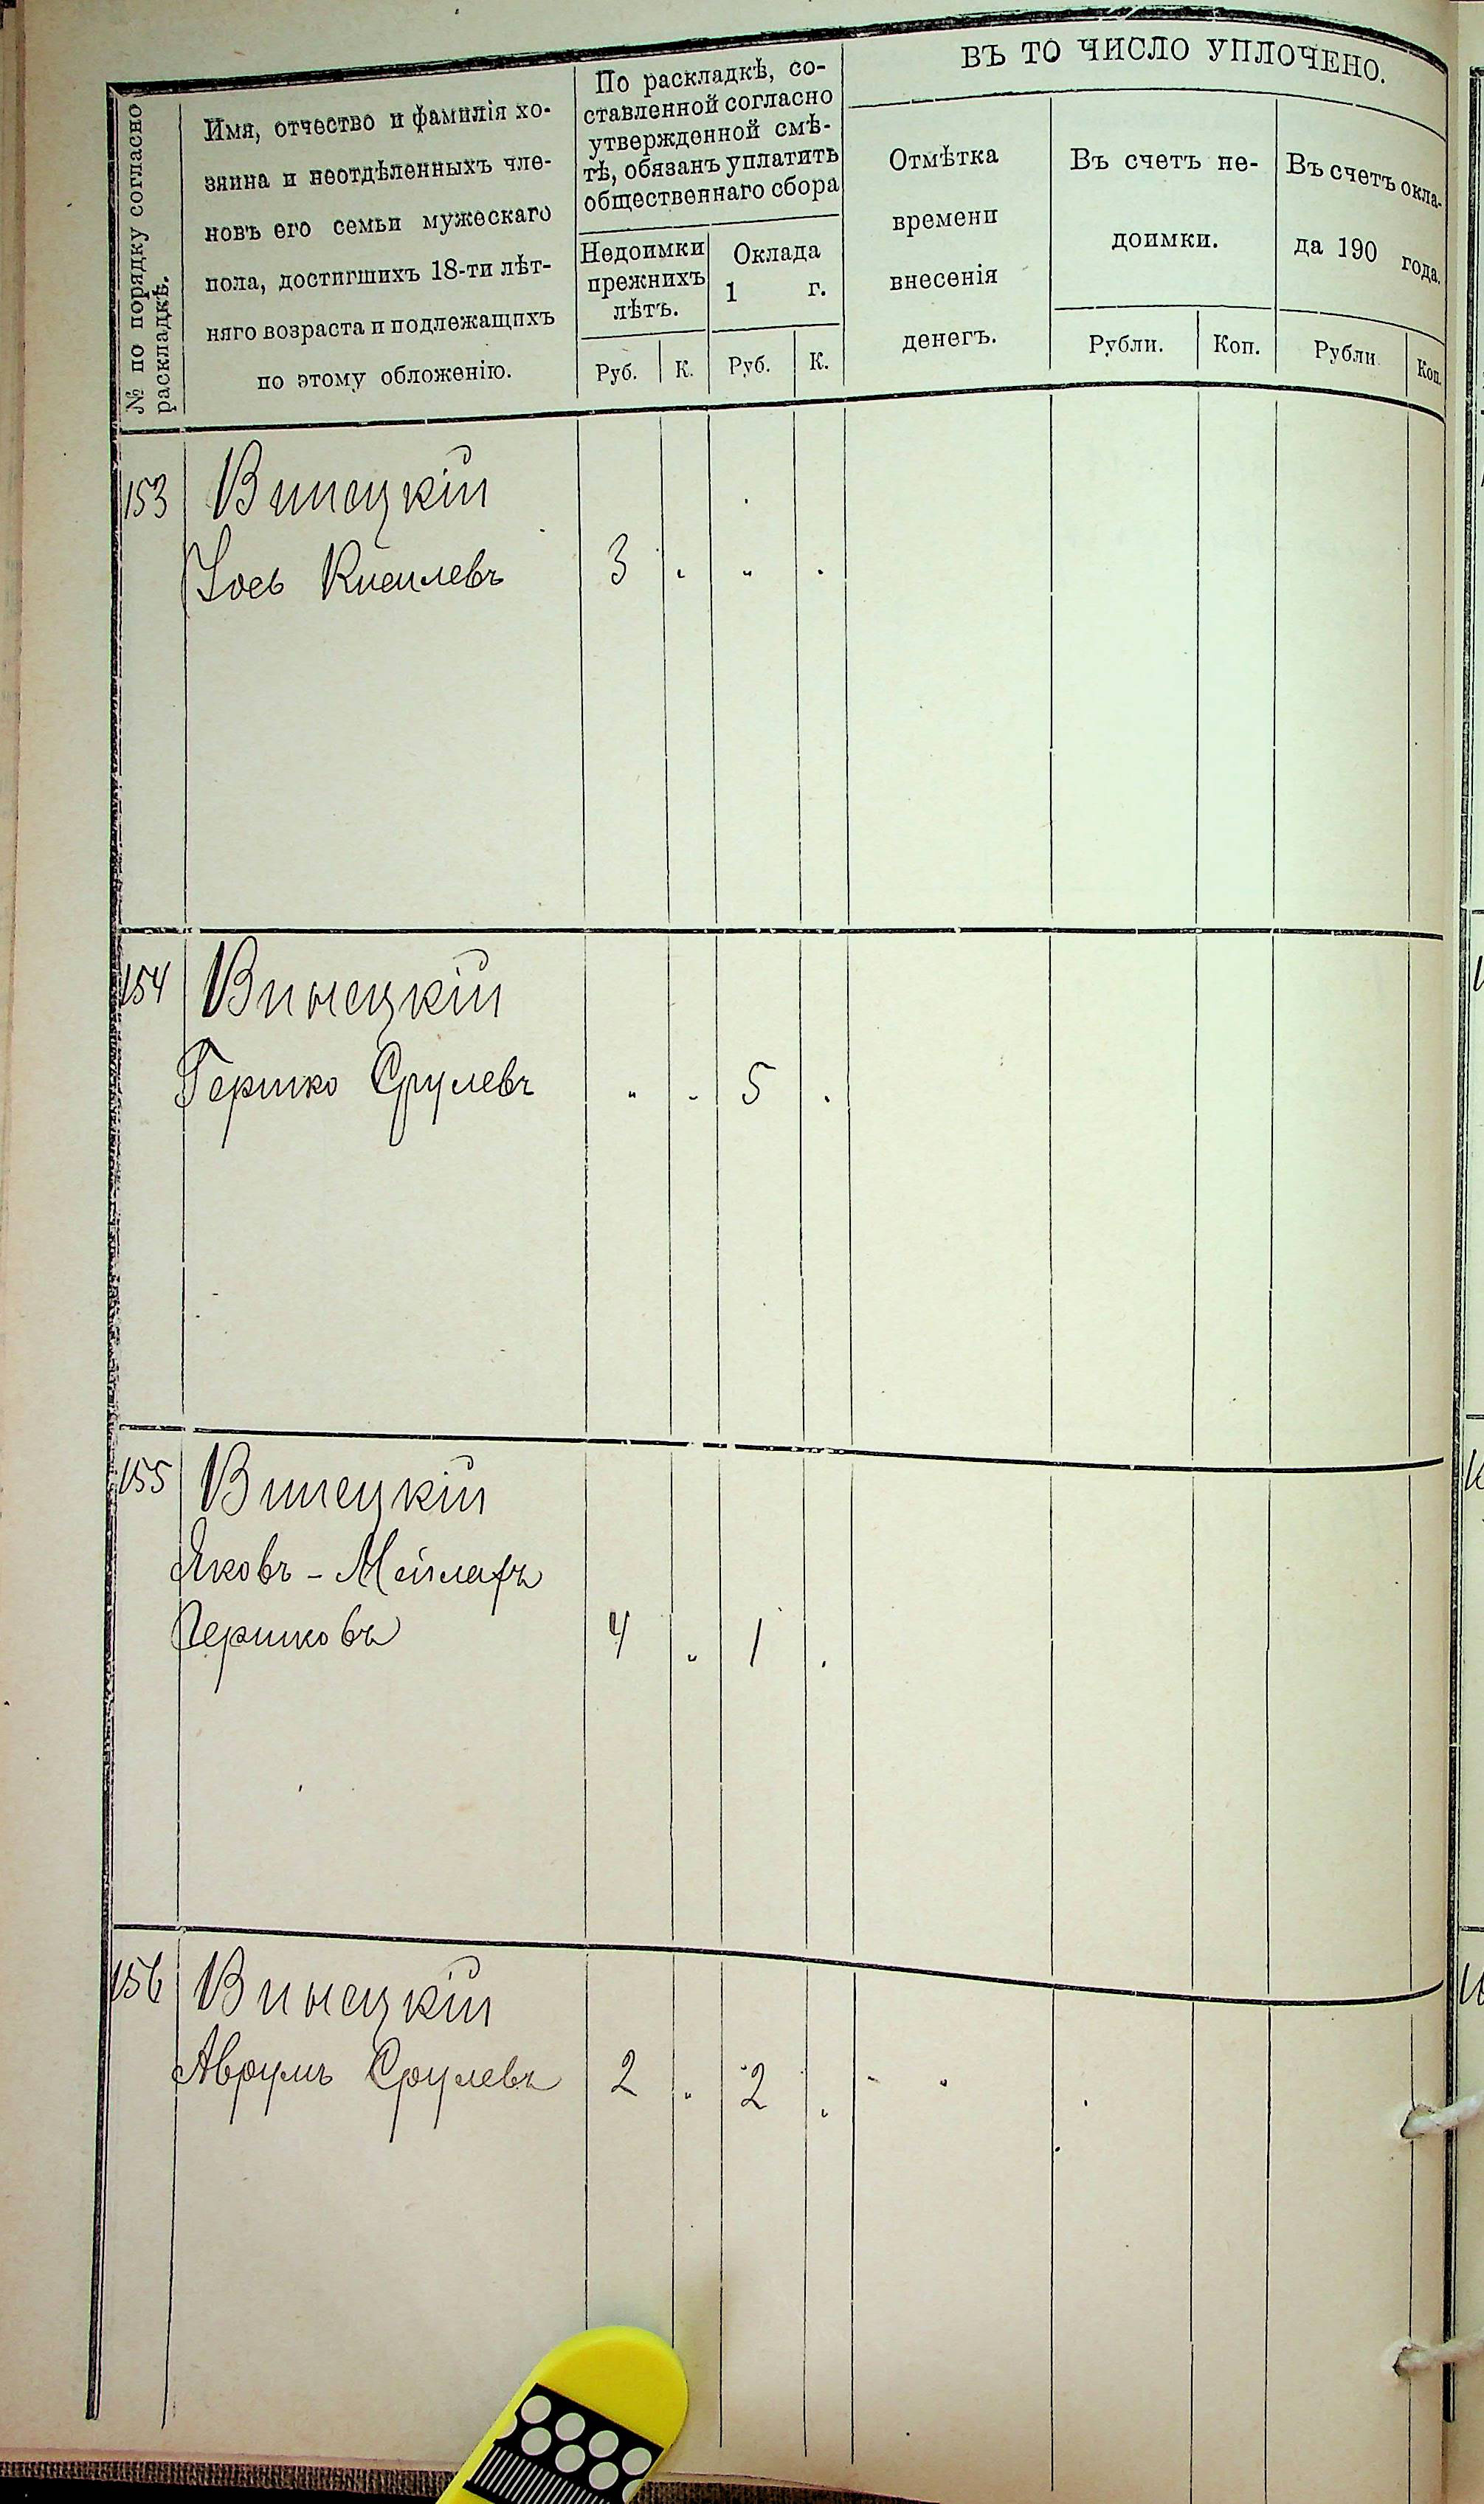 № по порядку согласно
раскладкѣ.
Имя, отчество и фамилія хо-
зяина и неотдѣленныхъ чле-
новъ его семьи мужескаго
пола, достигшихъ 18-ти лѣт-
няго возраста и подлежащихъ
по этому обложенію.
По раскладкѣ, со-
ставленной согласно
утвержденной смѣ-
тѣ, обязанъ уплатить
общественнаго сбора
Недоимки
прежнихъ
лѣтъ.
Оклада
1 г.
Руб. К. Руб. К.
ВЪ ТО ЧИСЛО УПЛОЧЕНО.
Отмѣтка
времени
внесенія
денегъ.
Въ счетъ не-
доимки.
Рубли. Коп.
Въ счетъ окла-
да 190 года.
Рубли Коп.
153 Винецкій
Іось 3 " " "
154 Винецкій
Гершко Срулевъ " " 5 "
155 Винецкій
Яковъ - Мейлахъ
Гершковъ 4 " 1 "
156 Винецкій
Аврумъ Срулевъ 2 " 2 "